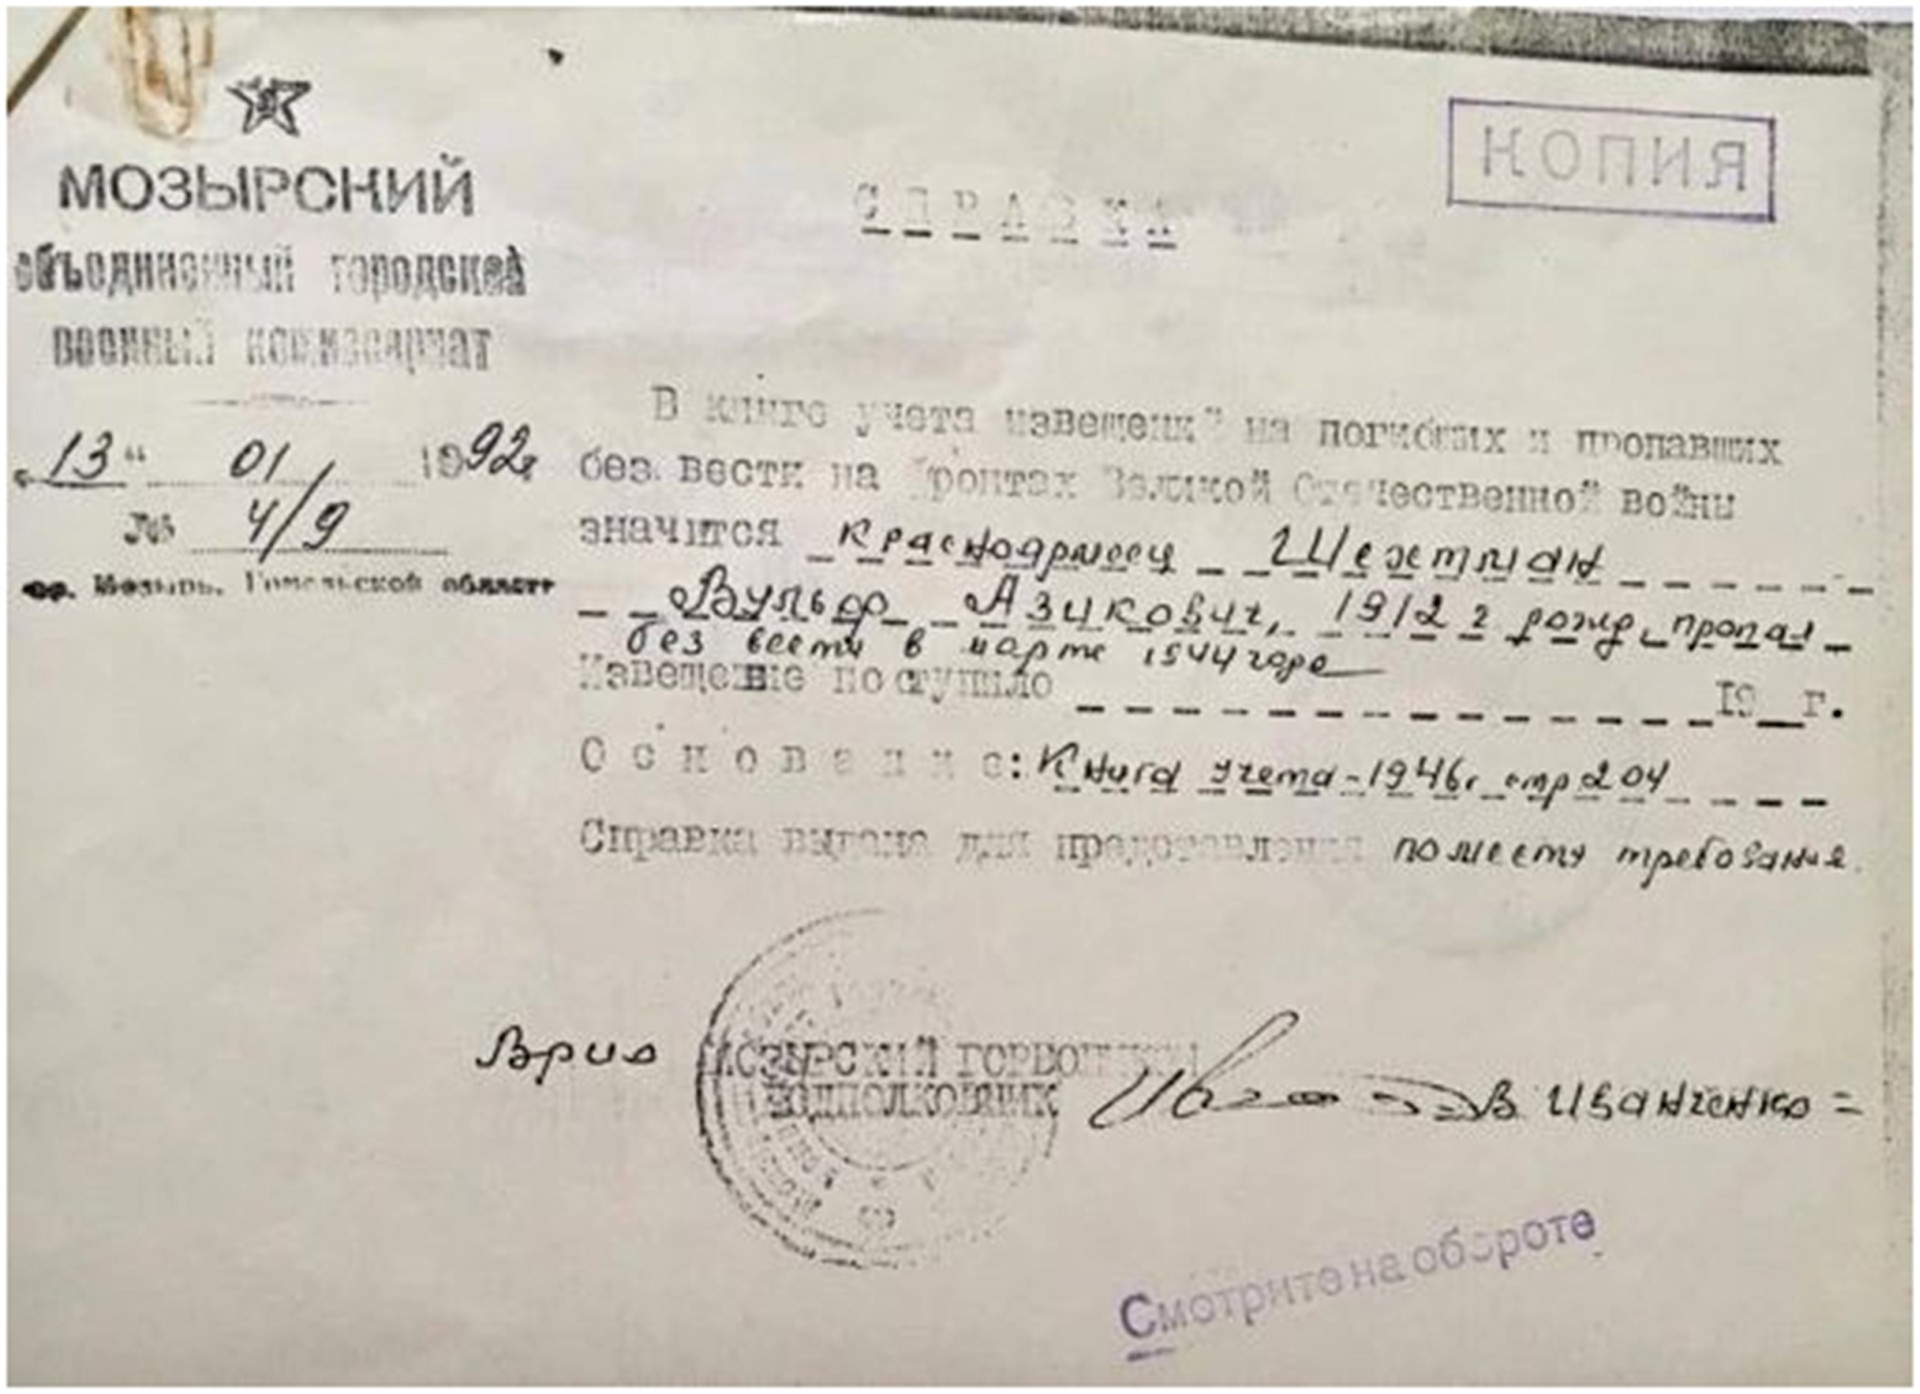 КОПИЯ
МОЗЫРСКИЙ
объединенный городской
военный комиссариат
„13" 01 1992г
№ 4/9
гор. Мозырь, Гомельской област
СПРАВКА
В книге учета извещений на погибших и пропавших
без вести на фронтах Великой Отечественной войны
значится красноармеец Шехтман
Вульф Азикович, 1912 г рожд, пропал
без вести в марте 1944 годе
Извещение поступило 19__г.
Основание: Книга учета-1946г стр 204
Справка выдана для представления по месту требования.
Врио МОЗЫРСКИЙ ГОРВОЕНКОМ
ПОДПОЛКОВНИК В Иванченко =
Смотрите на обороте